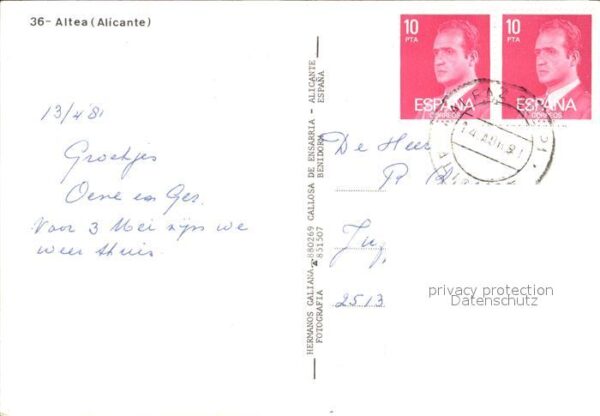 36- Altea (Alicante)
10
PTA
ESPAÑA
CORREOS
10
PTA
ESPAÑA
CORREOS
13/4 81
Groetjes
Oene en Ger.
Voor 3 Mei zijn we
weer thuis
HERMANOS GALIANA 880269 CALLOSA DE ENSARRIA - ALICANTE
FOTOGRAFIA 851507 BENIDORM ESPAÑA
De Heer
R
2513
privacy protection
Datenschutz